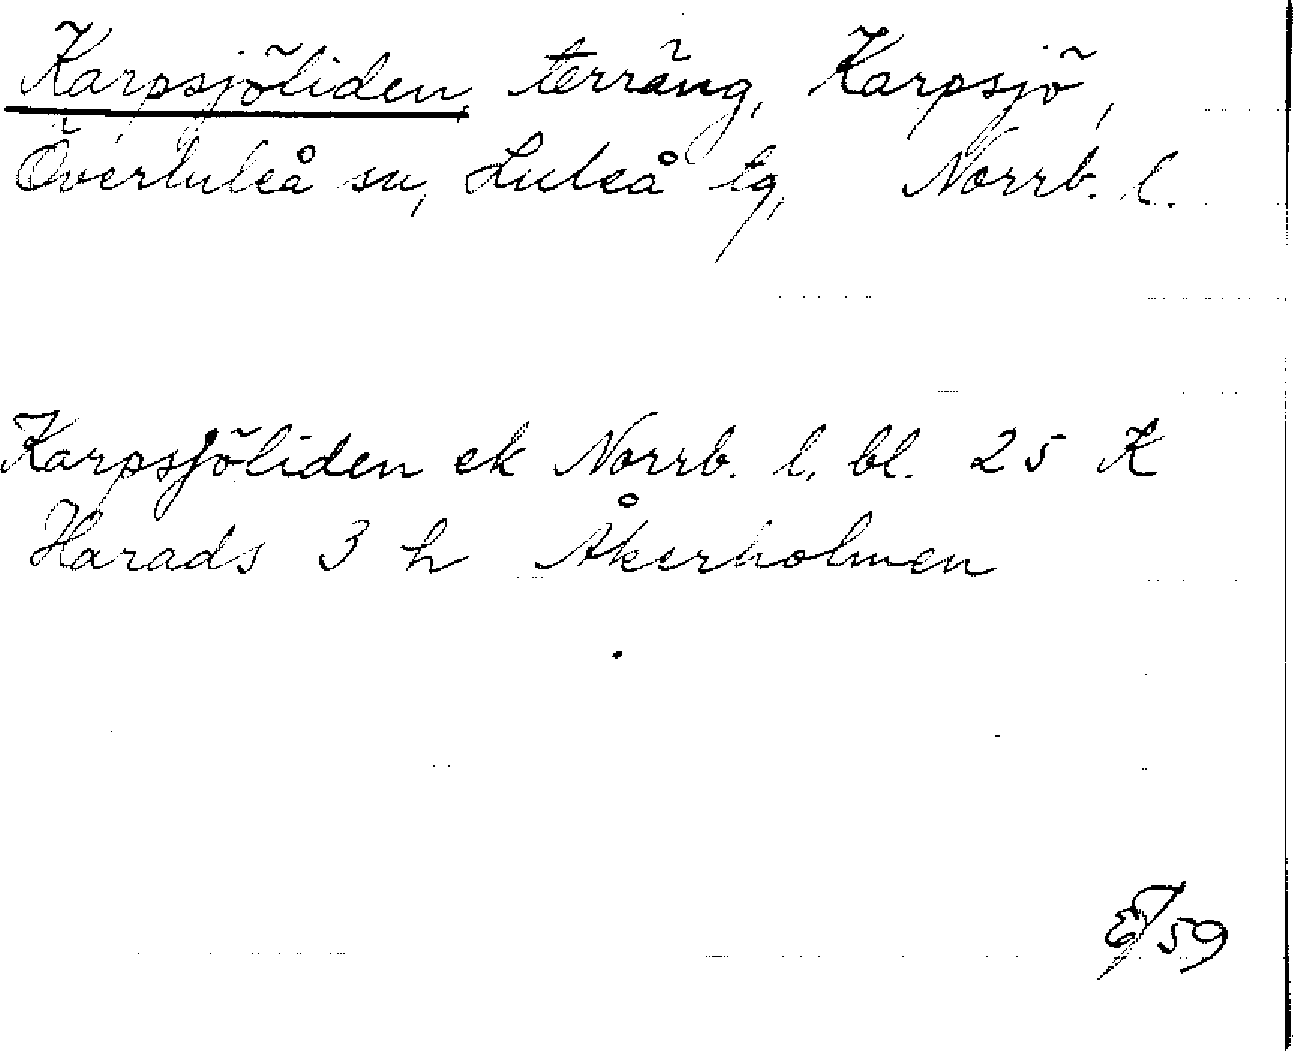 Karpsjöliden, terräng, Karpsjö,
Överluleå sn, Luleå tg, Norrb. l.
Karpsjöliden ek Norrb. l. bl. 25 K
Harads 3 h Åkerholmen
59